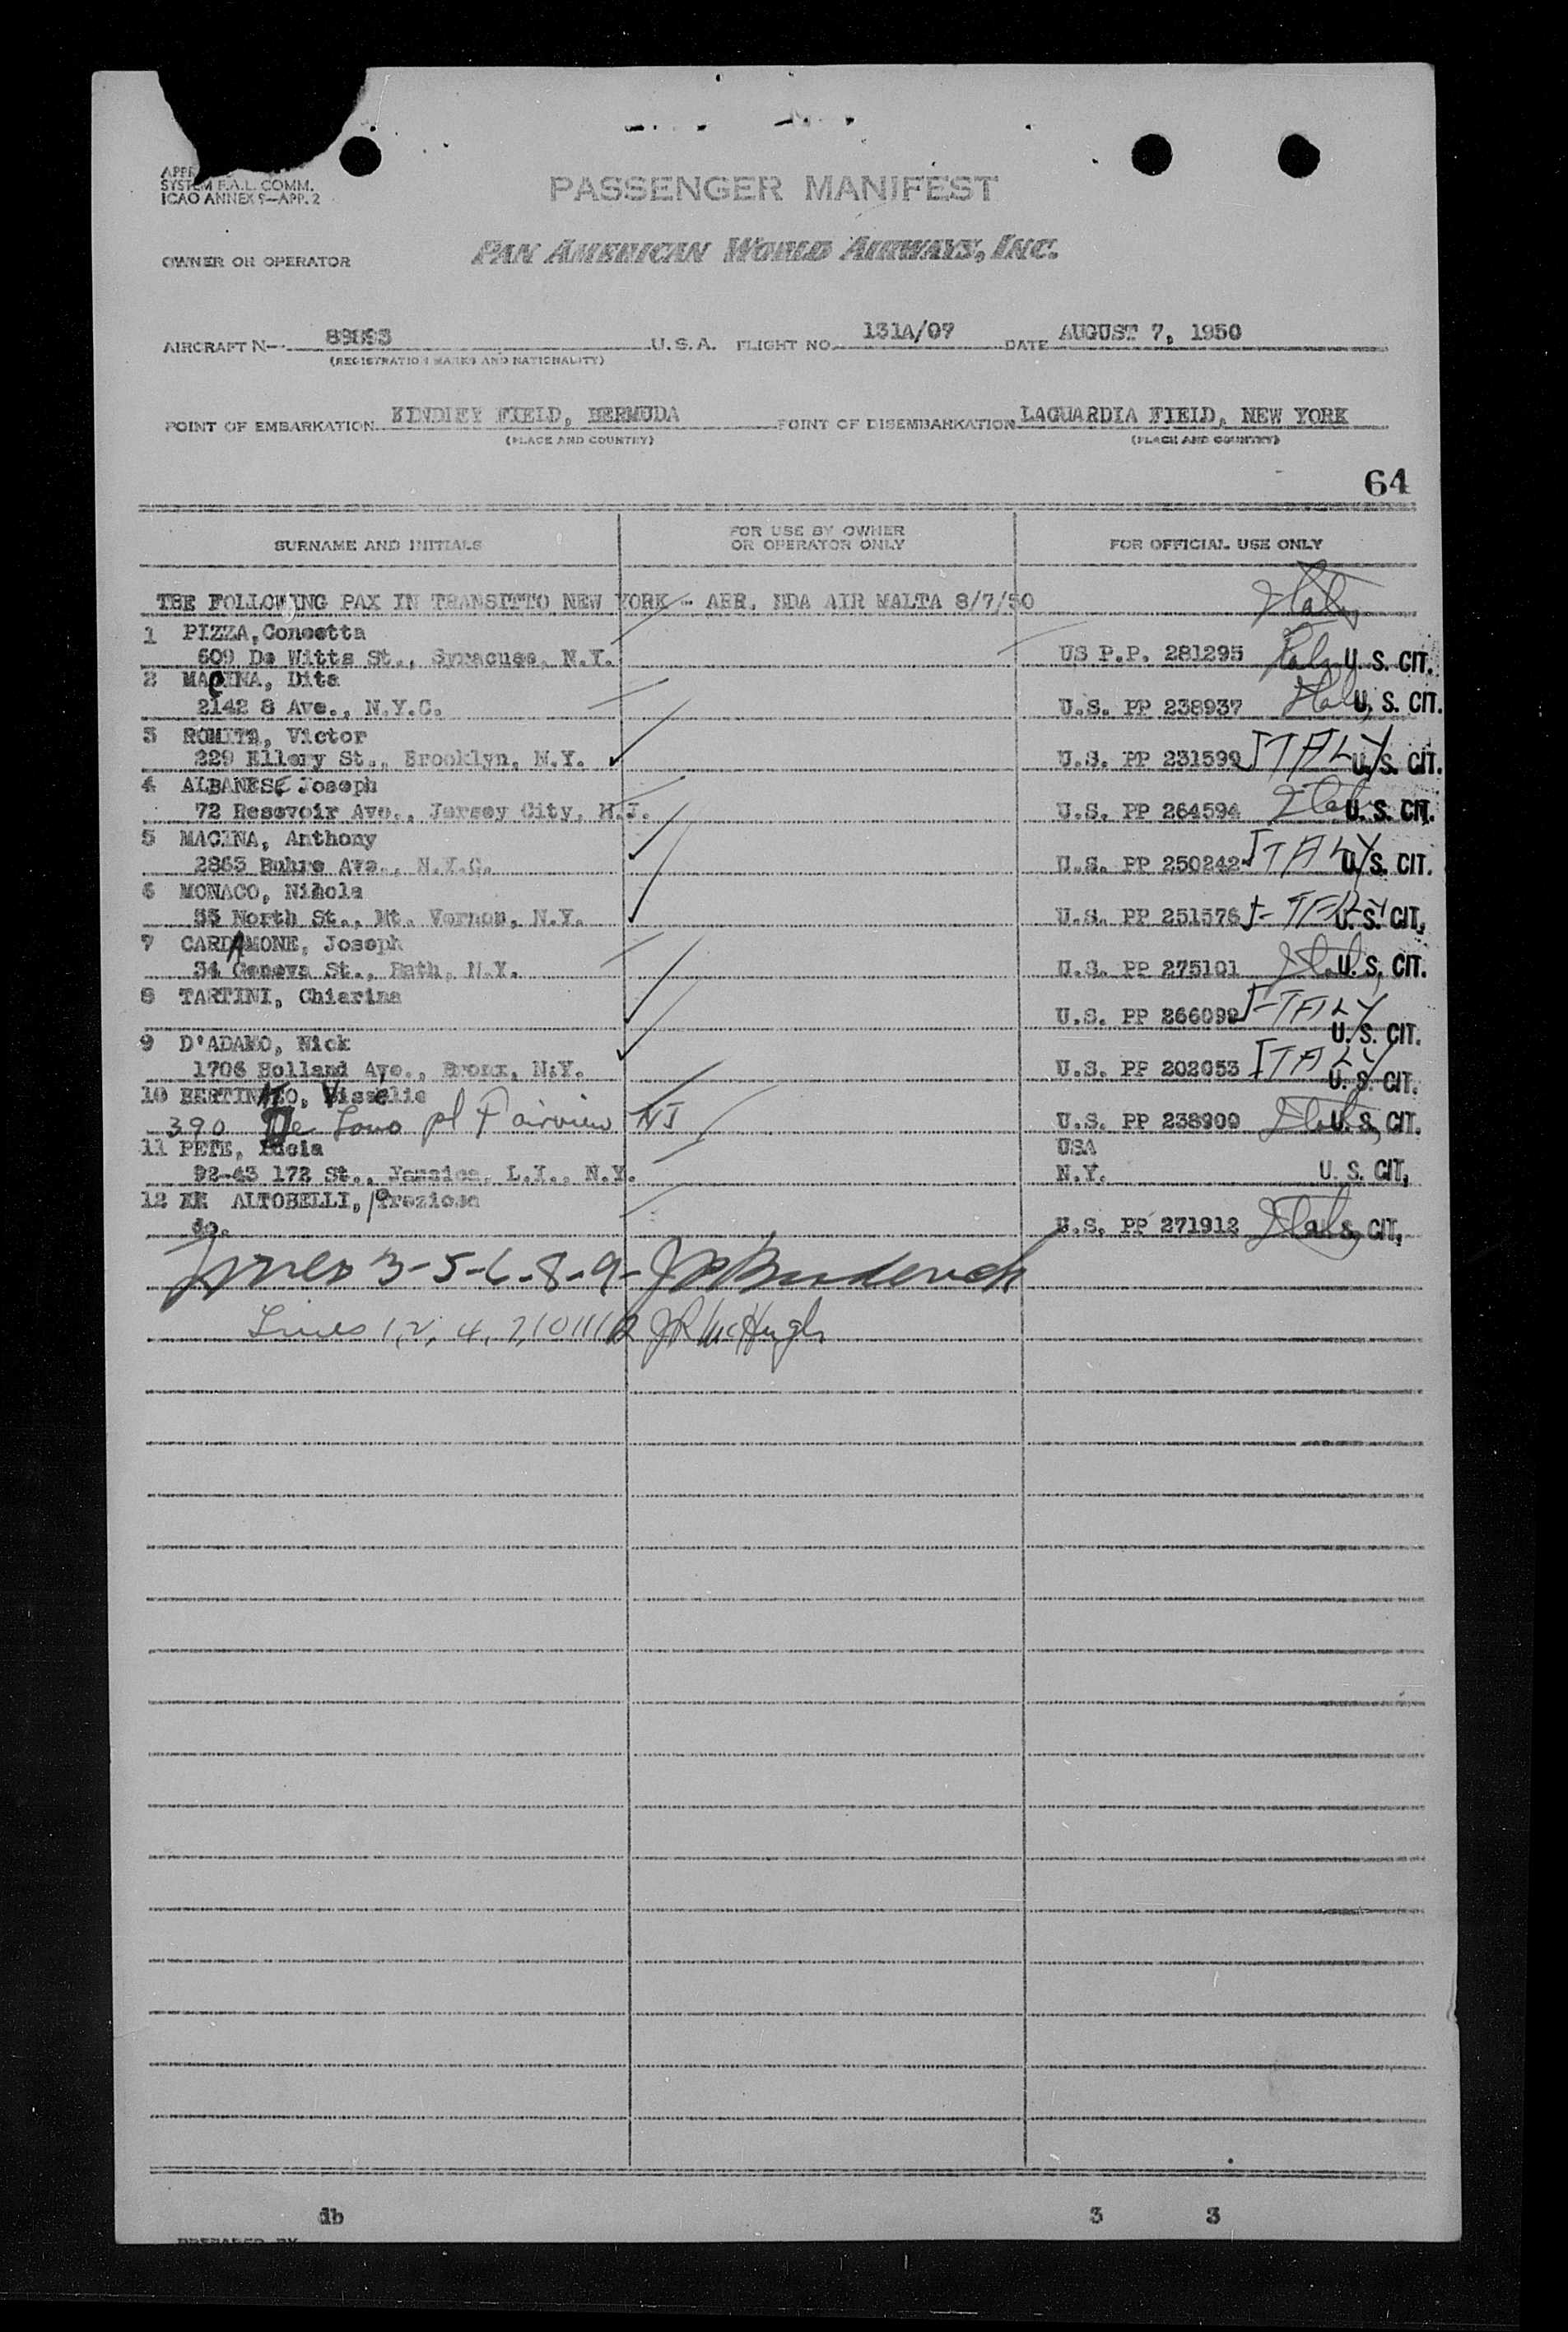 SYSTEM F.A.L. COMM.
ICAO ANNEX 9—APP. 2
PASSENGER MANIFEST
OWNER OR OPERATOR PAN AMERICAN WORLD AIRWAYS, INC.
AIRCRAFT N— U.S.A. FLIGHT NO. 131A/07 DATE AUGUST 7, 1950
(REGISTRATION MARKS AND NATIONALITY)
POINT OF EMBARKATION KINDLEY FIELD, BERMUDA POINT OF DISEMBARKATION LAGUARDIA FIELD, NEW YORK
(PLACE AND COUNTRY) (PLACE AND COUNTRY)
64
SURNAME AND INITIALS FOR USE BY OWNER OR OPERATOR ONLY FOR OFFICIAL USE ONLY
THE FOLLOWING PAX IN TRANSITTO NEW YORK - ARR. BDA AIR MALTA 8/7/50 Italy
1 PIZZA, Concetta
609 De Witts St., Syracuse, N.Y. US P.P. 281295 Italy U. S. CIT.
2 MACINA, Dita
2142 8 Ave., N.Y.C. U.S. PP 238937 Italy U. S. CIT.
3 ROMITA, Victor
229 Ellery St., Brooklyn, N.Y. U.S. PP 231599 ITALY U. S. CIT.
4 ALBANESE Joseph
72 Resevoir Ave., Jersey City, N.J. U.S. PP 264594 Italy U. S. CIT.
5 MACINA, Anthony
2863 Buhre Ave., N.Y.C. U.S. PP 250242 ITALY U. S. CIT.
6 MONACO, Nikola
55 North St., Mt. Vernon, N.Y. U.S. PP 251576 ITALY U. S. CIT.
7 CARDAMONE, Joseph
34 Geneva St., Bath, N.Y. U.S. PP 275101 Italy U. S. CIT.
8 TARTINI, Chiarina
U.S. PP 266099 ITALY U. S. CIT.
9 D'ADAMO, Nick
1706 Holland Ave., Bronx, N.Y. U.S. PP 202053 ITALY U. S. CIT.
10 BERTINATO,
390 De pl Fairview NJ U.S. PP 238909 Italy U. S. CIT.
11 PETE, Lucia USA
92-43 172 St., Jamaica, L.I., N.Y. N.Y. U. S. CIT.
12 ALTOBELLI, Graziosa
do. U.S. PP 271912 Italy U. S. CIT.
Lines 3-5-6-8-9-
Lines 1, 2, 4, 7, 10 11 12 JR McHugh
db 3 3
PREPARED BY